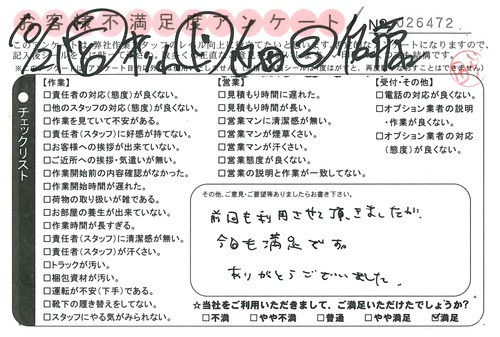 お客様不満足度アンケート
026472
チェックリスト
【作業】
□責任者の対応(態度)が良くない。
□他のスタッフの対応(態度)が良くない。
□作業を見ていて不安がある。
□責任者(スタッフ)に好感が持てない。
□お客様への挨拶が出来ていない。
□ご近所への挨拶・気遣いが無い。
□作業開始前の内容確認がなかった。
□作業開始時間が遅れた。
□荷物の取り扱いが雑である。
□お部屋の養生が出来ていない。
□作業時間が長すぎる。
□責任者(スタッフ)に清潔感が無い。
□責任者(スタッフ)が汗くさい。
□トラックが汚い。
□梱包資材が汚い。
□運転が不安(下手)である。
□靴下の履き替えをしてない。
□スタッフにやる気がみられない。
【営業】
□見積もり時間に遅れた。
□見積もり時間が長い。
□営業マンに清潔感が無い。
□営業マンが煙草くさい。
□営業マンが汗くさい。
□営業態度が良くない。
□営業の説明と作業が一致してない。
【受付・その他】
□電話の対応が良くない。
□オプション業者の説明
・作業が良くない。
□オプション業者の対応
(態度)が良くない。
その他、ご意見・ご要望等ありましたらお書き下さい。
前回も利用させて頂きましたが、
今回も満足です。
ありがとうございました。
☆当社をご利用いただきまして、ご満足いただけたでしょうか?
□不満 □やや不満 □普通 □やや満足 ☑満足